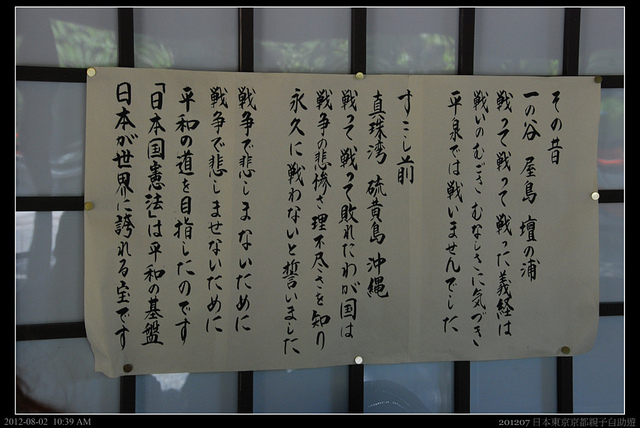 その昔
一の谷 屋島 壇の浦
戦って戦って戦った義経は
戦いのむごさむなしさに気づき
平泉では戦いませんでした
すこし前
真珠湾 硫黄島 沖縄
戦って戦って敗れたわが国は
戦争の悲惨さ理不尽さを知り
永久に戦わないと誓いました
戦争で悲しまないために
戦争で悲しませないために
平和の道を目指したのです
「日本国憲法」は平和の基盤
日本が世界に誇れる宝です
2012-08-02 10:39 AM
201207 日本東京京都親子自助遊